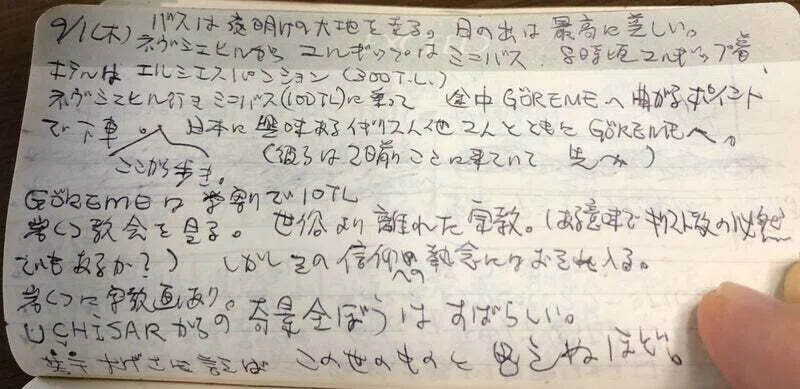 9/1(木) バスは夜明けの大地を走る。日の出は最高に美しい。
ネヴシェヒルからユルギュップはミニバス、8時頃ユルギュップ着、
ホテルはエルシエスパンション(300T.L.)
ネヴシェヒル行きミニバス(100TL)に乗って 途中GÖREMEへ曲がるポイント
で下車。日本に興味あるイギリス人他2人とともにGÖREMEへ。
ここから歩き。 (彼らは2日前ここに来ていて 先へ)
GÖREMEは学割で10TL
岩くつ教会を見る。世俗より離れた宗教。(ある意味でキリスト教の必然
でもあるか?) しかしその信仰への執念にはおそれ入る。
岩くつに宗教画あり。
UÇHISARからの奇景全ぼうはすばらしい。
大げさに言えば この世のものと思えぬほど。